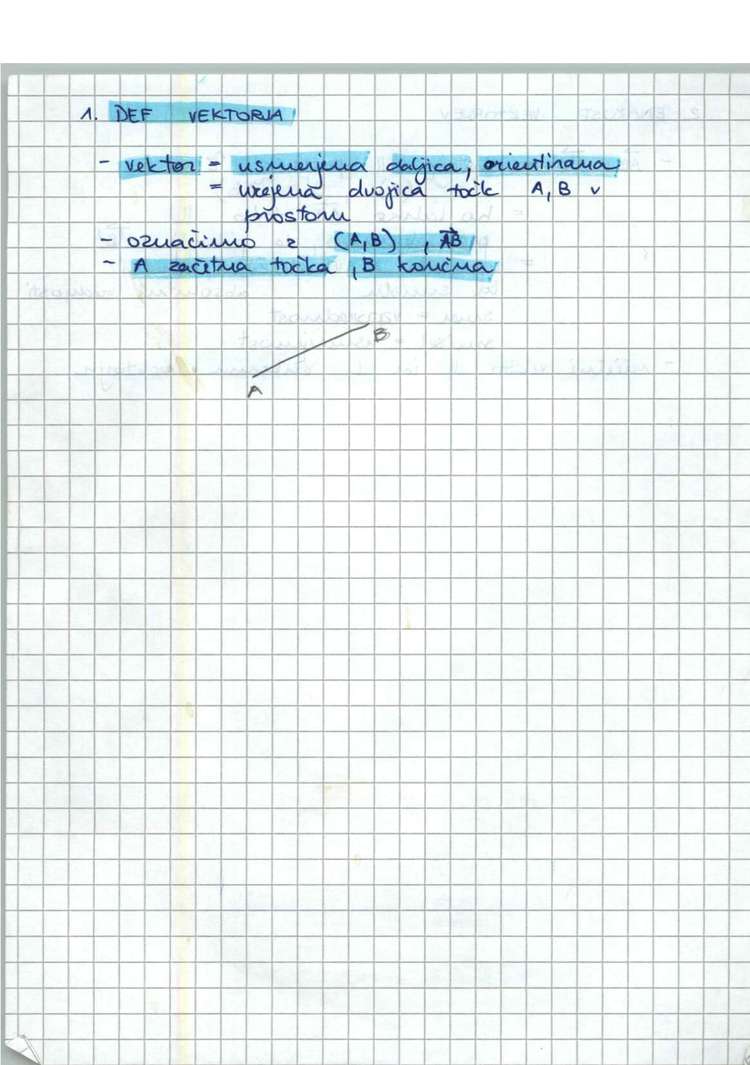 1. DEF VEKTORJA
- vektor = usmerjena daljica, orientirana
= urejena dvojica točk A, B v
prostoru
- označimo z (A,B), \overrightarrow{AB}
- A začetna točka, B končna
B
A